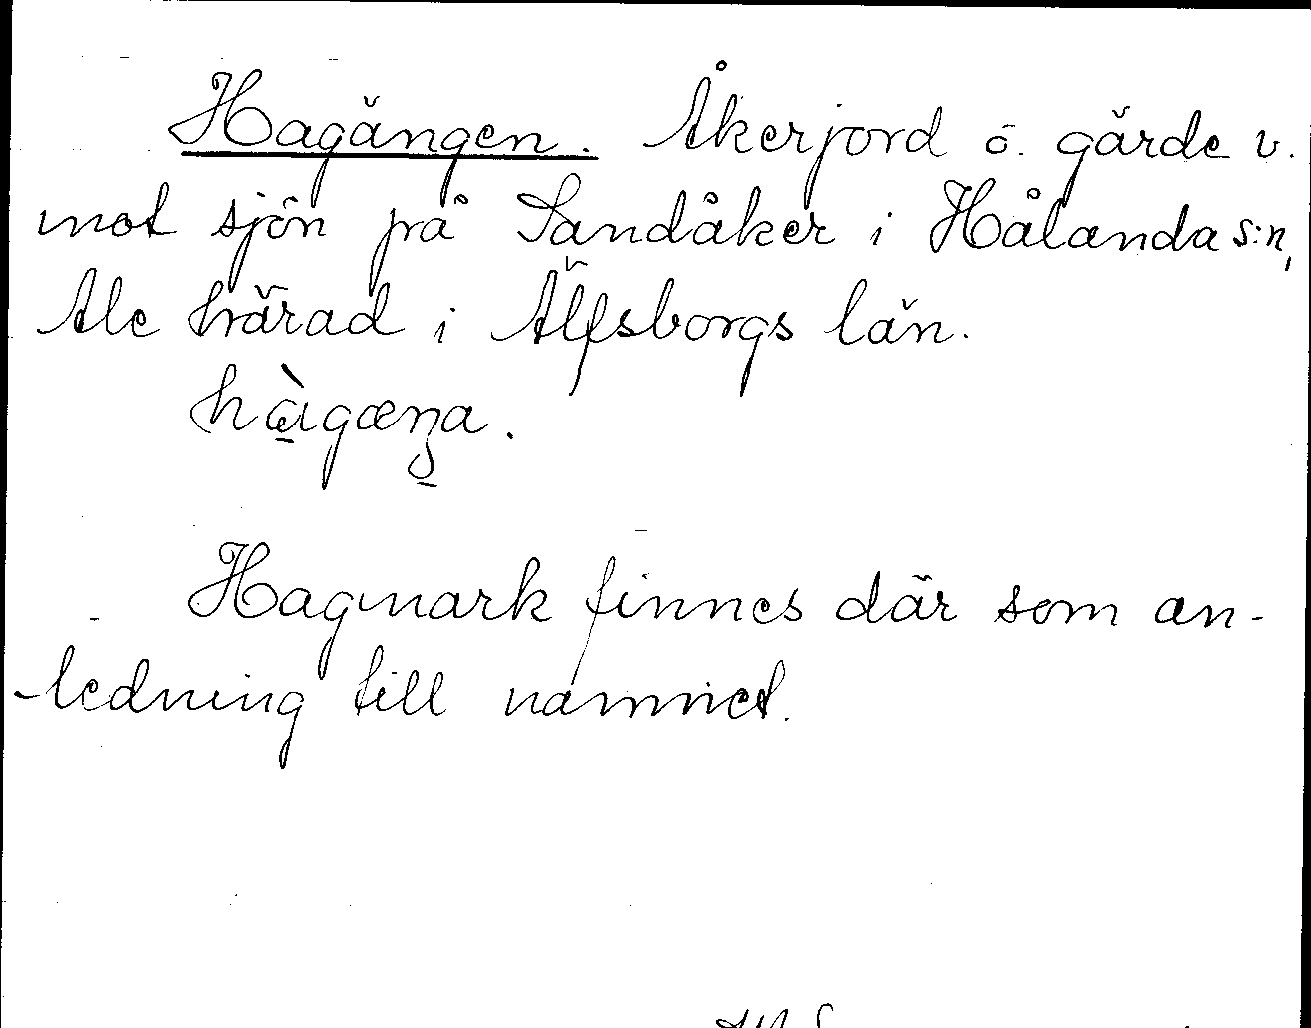 Hagängen. Åkerjord ö. gärde v.
mot sjön på Sandåker i Hålanda s:n,
Ale härad i Älfsborgs län.
hàgæŋa.
Hagmark finnes där som an-
-ledning till namnet.